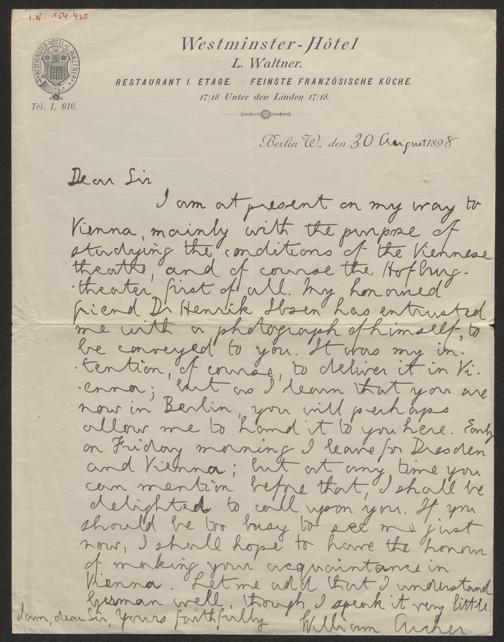 I.N. 154.423
Westminster-Hôtel
L. Waltner.
RESTAURANT I. ETAGE. FEINSTE FRANZÖSISCHE KÜCHE.
17/18 Unter den Linden 17/18.
Tel. I, 616.
Berlin W., den 30 August 1898
Dear Sir
I am at present on my way to
Vienna, mainly with the purpose of
studying the conditions of the Viennese
theatre, and of course the Hofburg-
-theater, first of all. My honoured
friend Dr Henrik Ibsen has entrusted
me with a photograph of himself, to
be conveyed to you. It was my in-
-tention, of course, to deliver it in Vi-
-enna; but as I learn that you are
now in Berlin, you will perhaps
allow me to hand it to you here. Early
on Friday morning I leave for Dresden
and Vienna; but at any time you
can mention before that, I shall be
delighted to call upon you. If you
should be too busy to see me just
now, I shall hope to have the honour
of making your acquaintance in
Vienna. Let me add that I understand
German well, though I speak it very little.
I am, dear Sir, Yours faithfully
William Archer.